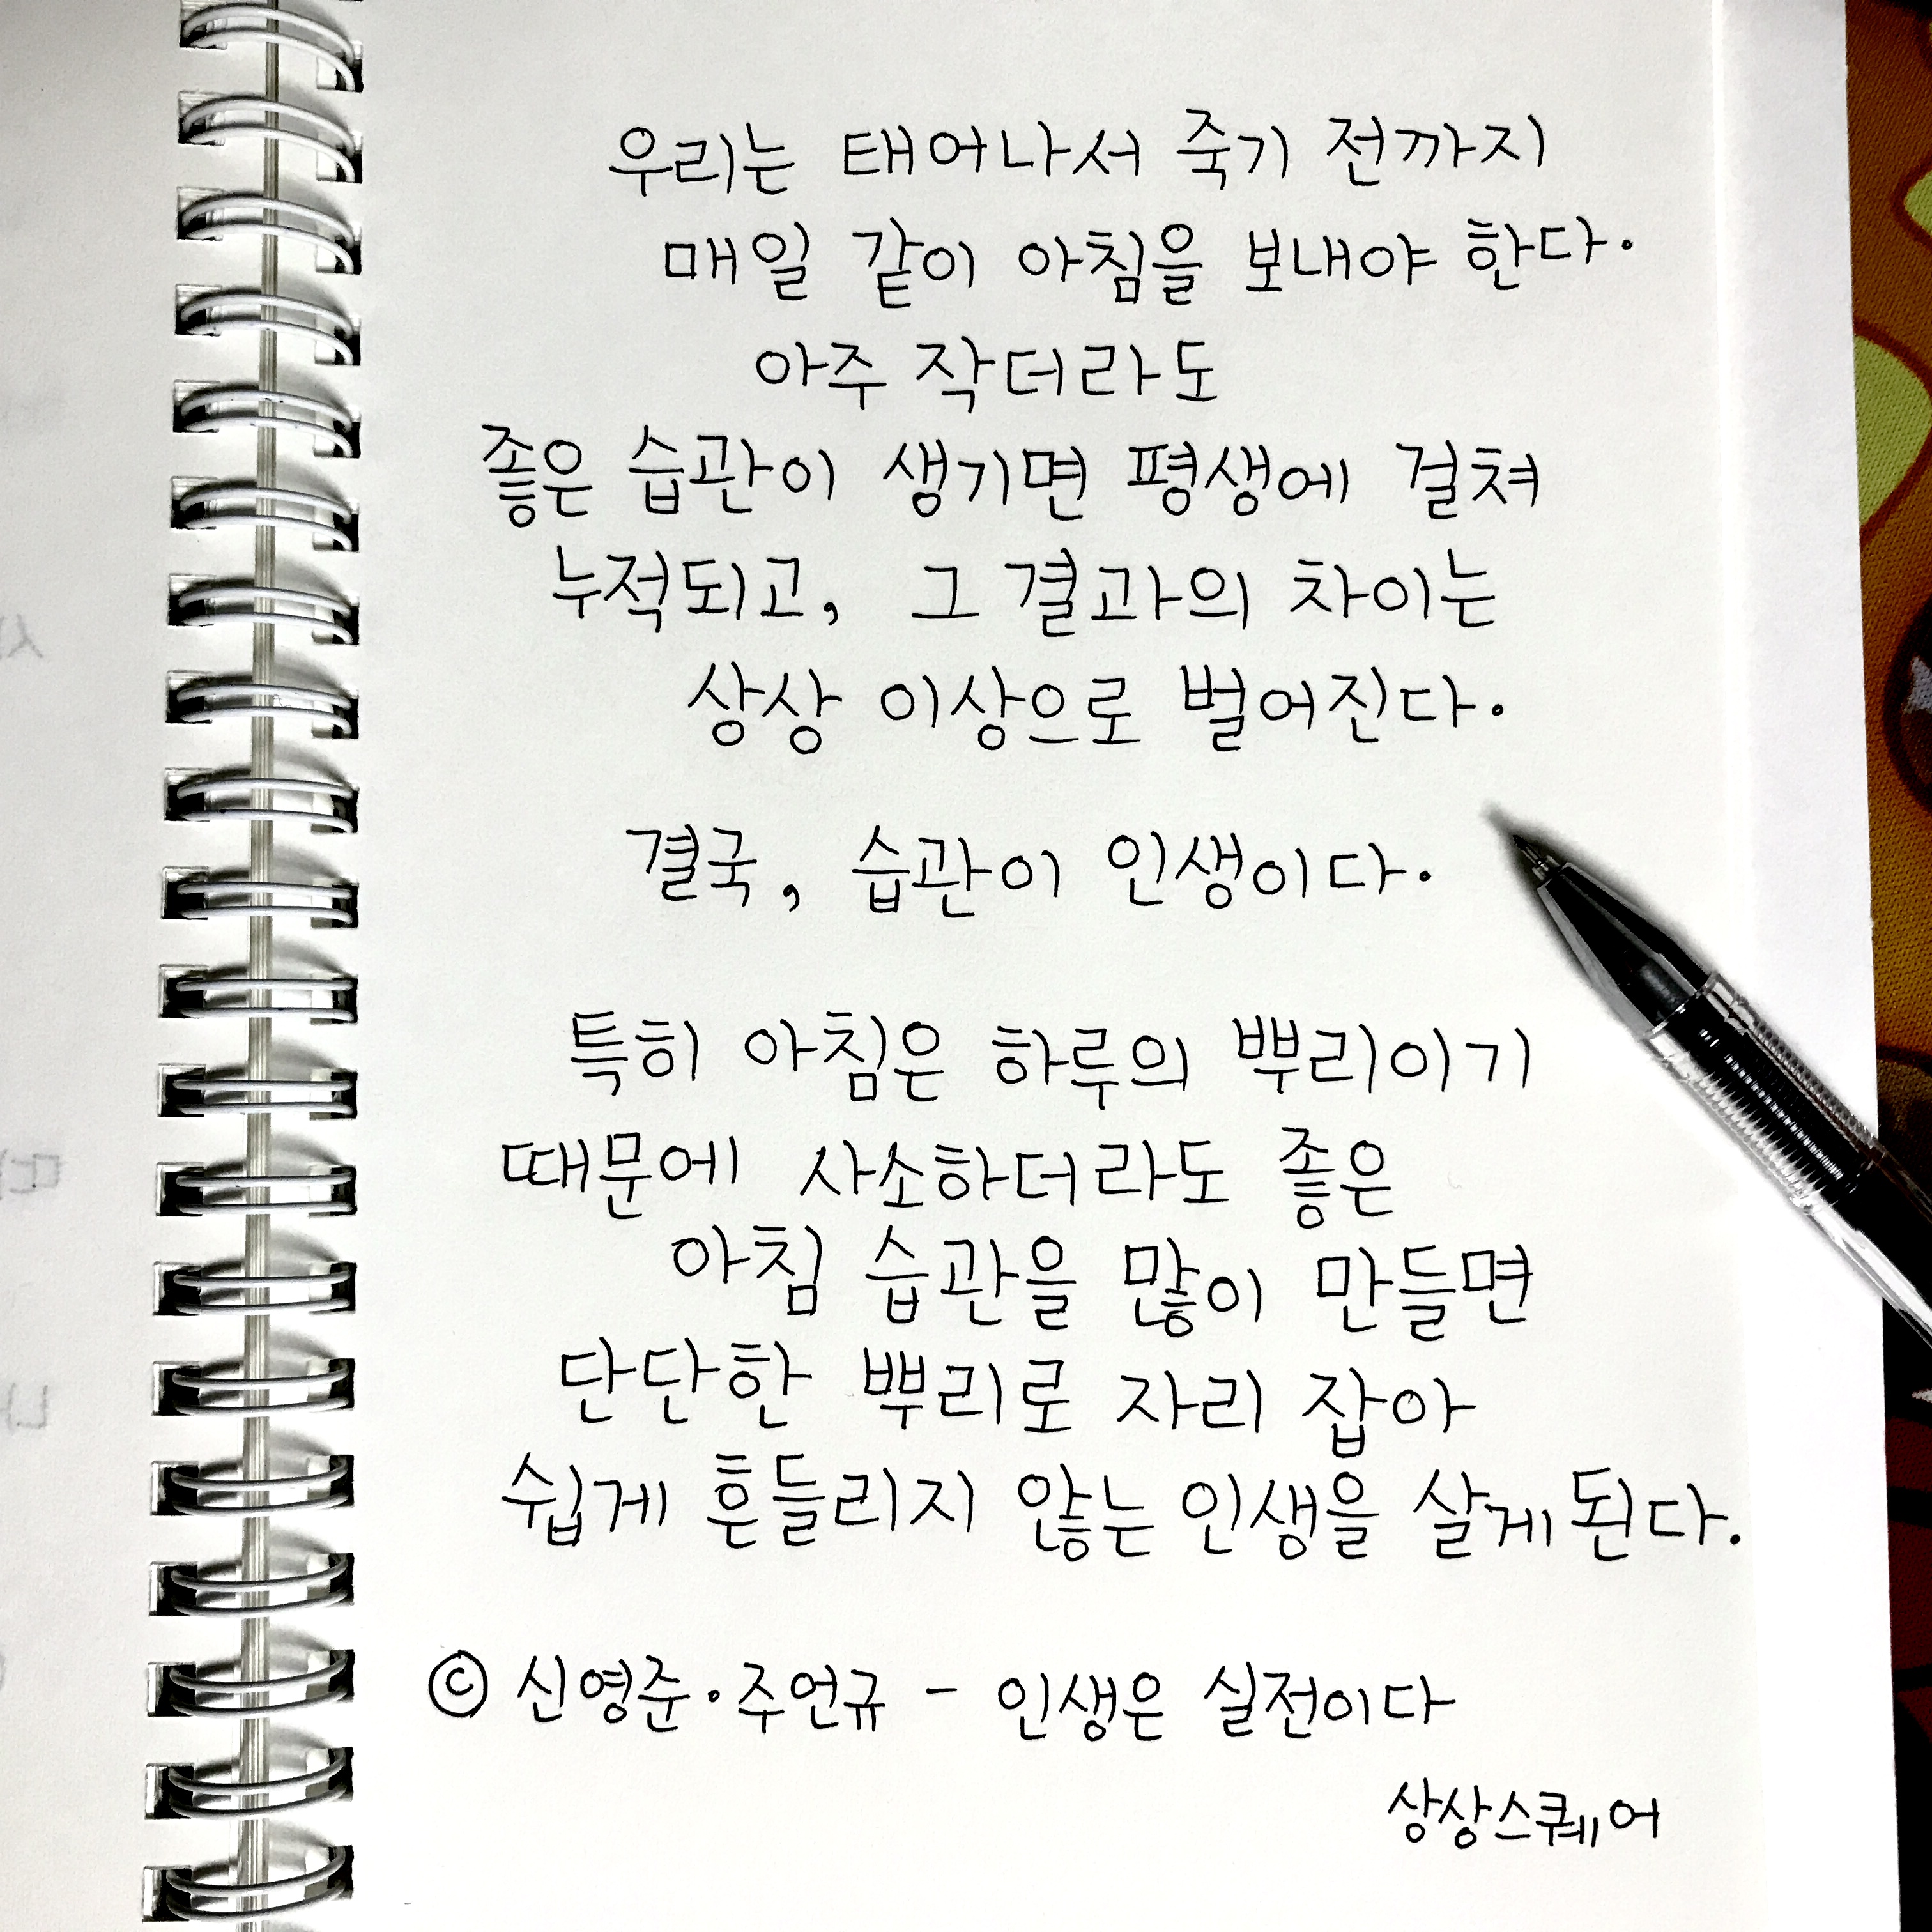 우리는 태어나서 죽기 전까지
매일 같이 아침을 보내야 한다.
아주 작더라도
좋은 습관이 생기면 평생에 걸쳐
누적되고, 그 결과의 차이는
상상 이상으로 벌어진다.
결국, 습관이 인생이다.
특히 아침은 하루의 뿌리이기
때문에 사소하더라도 좋은
아침 습관을 많이 만들면
단단한 뿌리로 자리 잡아
쉽게 흔들리지 않는 인생을 살게된다.
© 신영준·주언규 - 인생은 실전이다
상상스퀘어